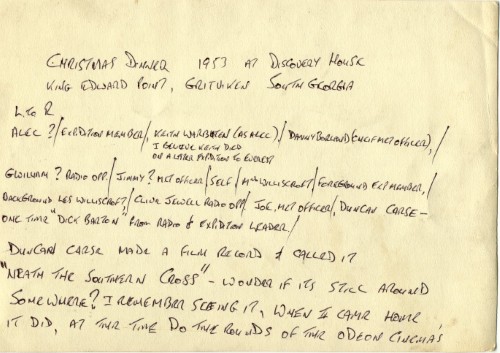 CHRISTMAS DINNER 1953 AT DISCOVERY HOUSE
KING EDWARD POINT, GRITVIKEN SOUTH GEORGIA
L. TO R
ALEC ? / EXPDITION MEMBER / KEITH WARBURTON (AS ALEC) / DANNY BORLAND (ENCIF MET OFFICER), /
I BELIEVE KEITH DIED
ON A LATER EXPDITION TO EVEREST
GWILLIAM ? RADIO OPP. / JIMMY ? MET OFFICER / SELF / MRS WILLISCROFT / FOREGROUND EXP MEMBER, /
BACKGROUND LES WILLISCROFT, / CLIVE JEWELL RADIO OPP / JOE, MET OFFICER, / DUNCAN CARSE —
ONE TIME "DICK BARTON" FROM RADIO & EXPDITION LEADER /
DUNCAN CARSE MADE A FILM RECORD & CALLED IT
"NEATH THE SOUTHERN CROSS" - WONDER IF ITS STILL AROUND
SOMEWHERE? I REMEMBER SEEING IT, WHEN I CAME HOME,
IT DID, AT THE TIME DO THE ROUNDS OF THE ODEON CINEMAS